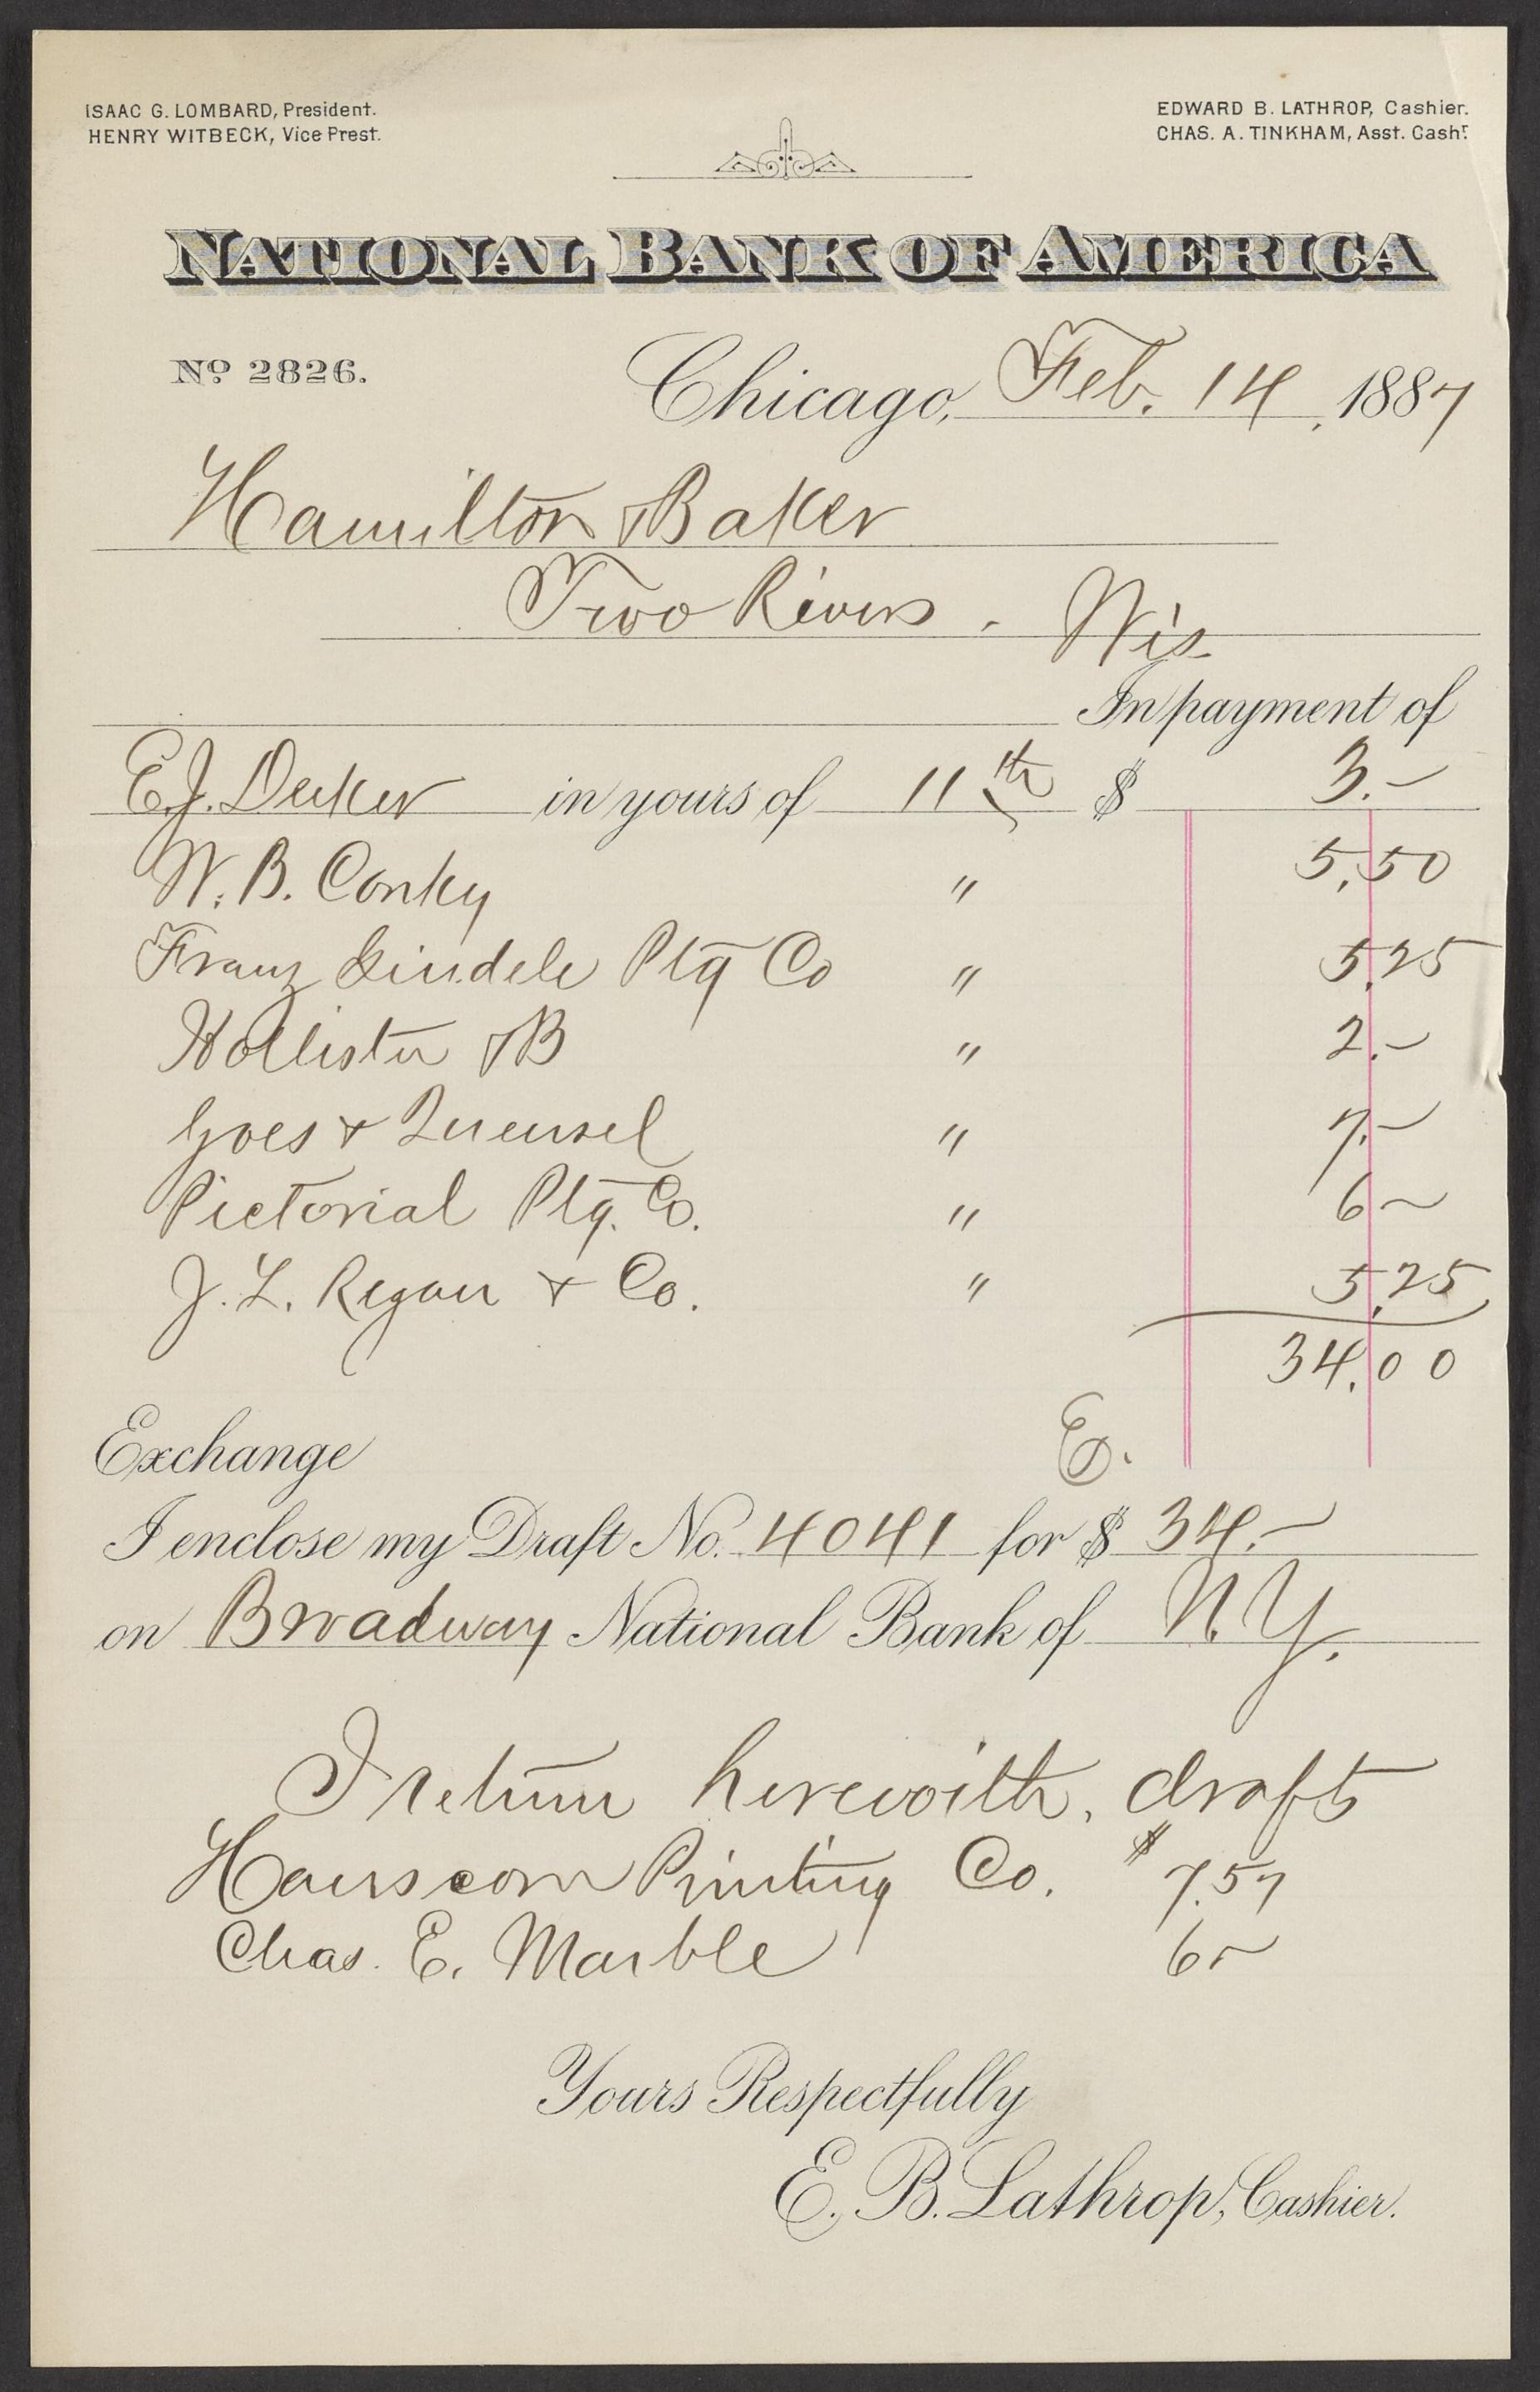 ISAAC G. LOMBARD, President.
HENRY WITBECK, Vice Prest.
EDWARD B. LATHROP, Cashier.
CHAS. A. TINKHAM, Asst. Cashr.
NATIONAL BANK OF AMERICA
No. 2826.
Chicago, Feb. 14, 1887
Hamilton & Baker
Two Rivers. Wis
In payment of
E.J. Decker in yours of 11th $ 3.—
W. B. Conky " 5.50
Franz Gindele Ptg Co " 5.25
Hollister & B " 2.—
Goes & Quensel " 7.—
Pictorial Ptg. Co. " 6—
J. L. Regan & Co. " 5.25
34.00
Exchange E.
I enclose my Draft No. 4041 for $ 34.—
on Broadway National Bank of N.Y.
I return herewith, drafts
Hanscom Printing Co. $ 7.57
Chas. E. Marble 6—
Yours Respectfully
E. B. Lathrop, Cashier.